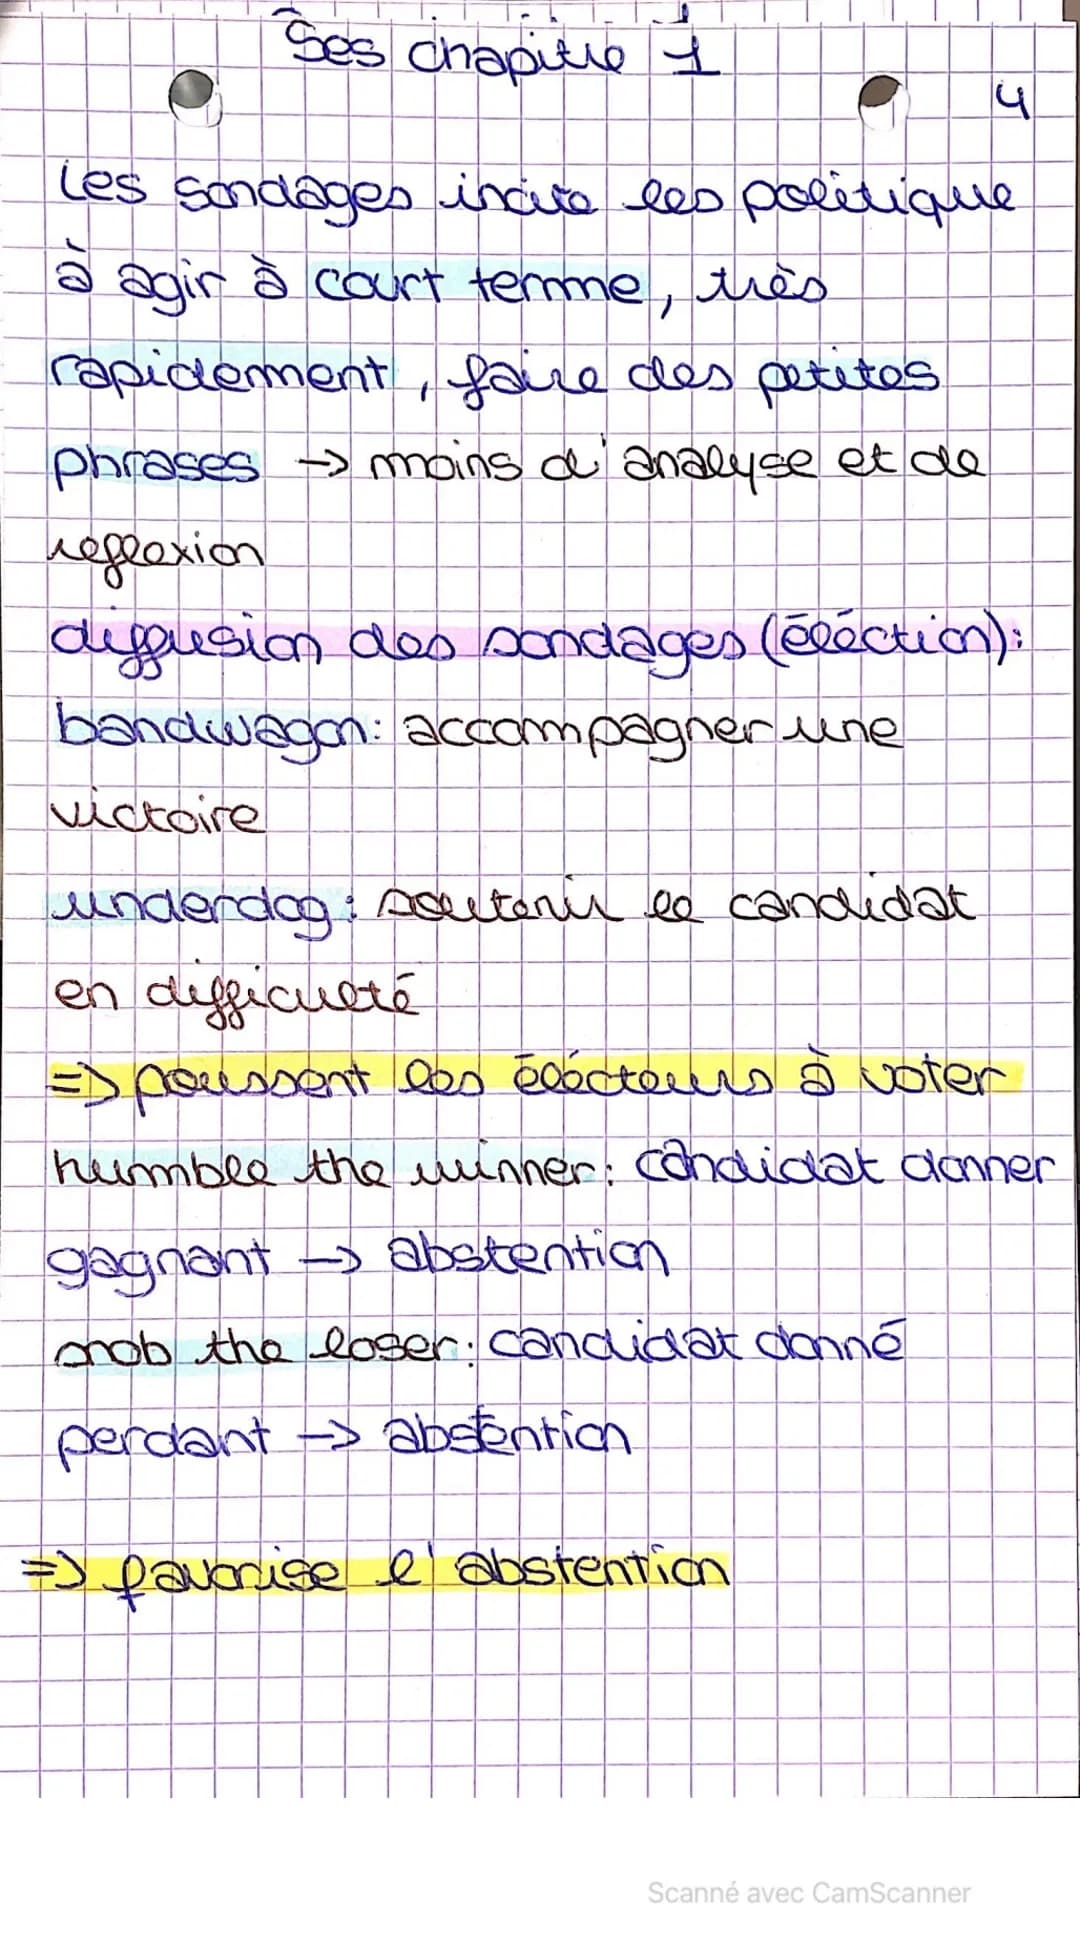 Ses chapitre 1
4
Les sondages incite les politique
à agir à court terme, très
rapidement, faire des petites
phrases -> moins d'analyse et de
reflexion
diffusion des sondages (éléction):
bandwagon: accompagner une
victoire
underdog: soutenir le candidat
en difficulté
=> poussent les élécteurs à voter
humble the winner: candidat donner
gagnant -> abstention
snob the loser: candidat donné
perdant -> abstention
=> favorise l'abstention
Scanné avec CamScanner